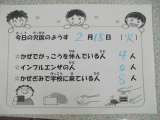 今日の欠席のようす 2月18日(火)
☆かぜでがっこうを休んでいる人 4人
☆インフルエンザの人 0人
☆かぜぎみで学校に来ている人 8人